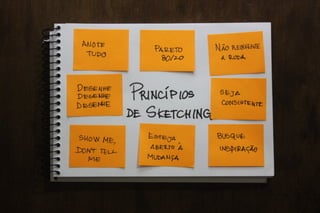 ANOTE
TUDO
PARETO
80/20
NÃO REINVENTE
A RODA
DESENHE
DESENHE
DESENHE
PRINCÍPIOS
DE SKETCHING
SEJA
CONSISTENTE
SHOW ME,
DONT TELL
ME
ESTEJA
ABERTO À
MUDANÇA
BUSQUE
INSPIRAÇÃO